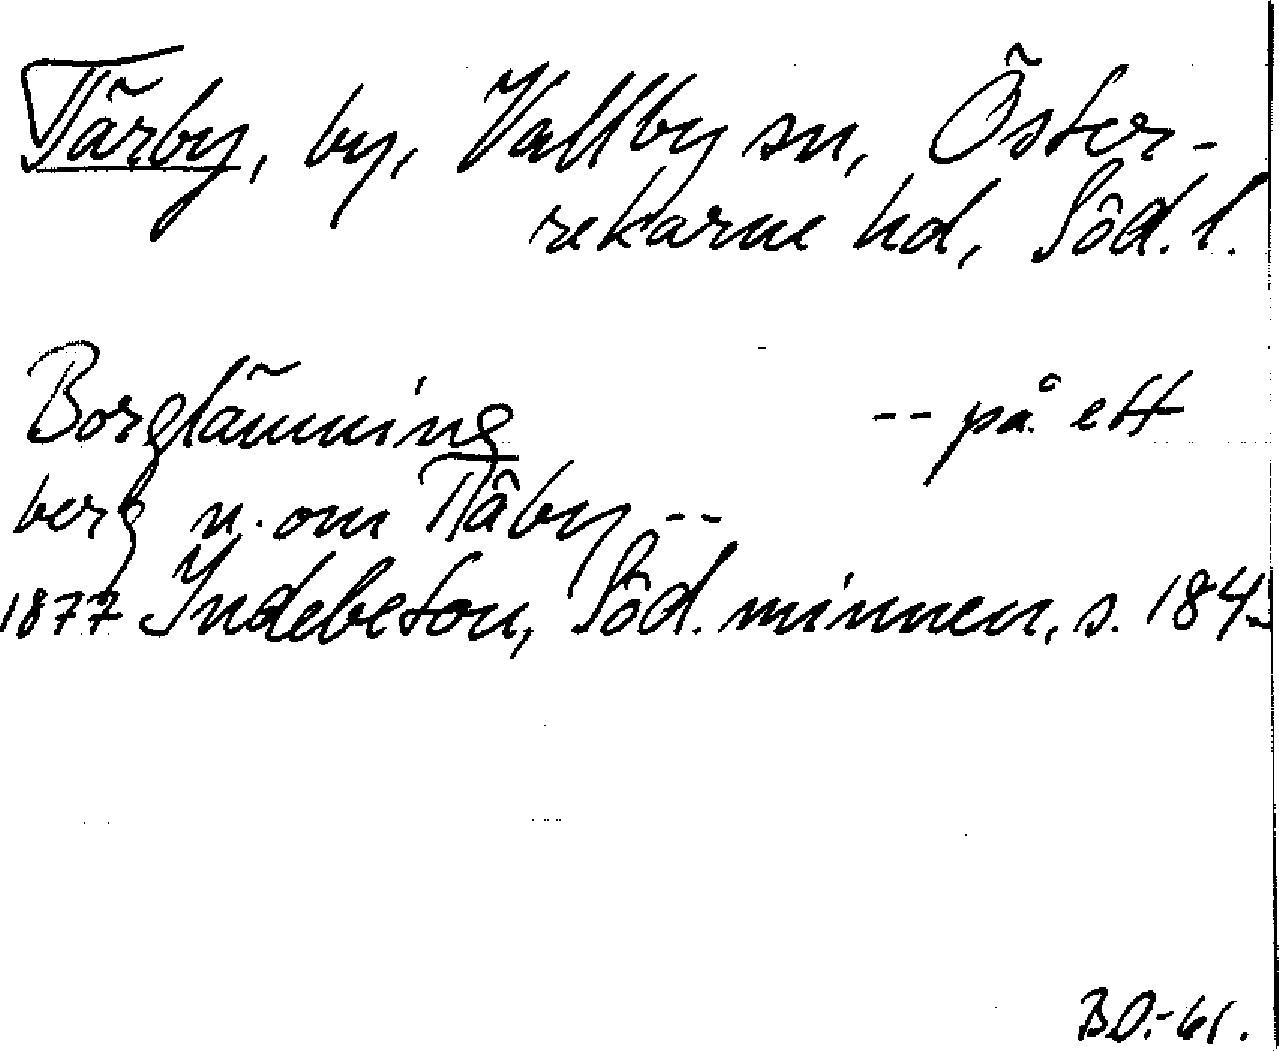 Tärby, by, Vallby sn, Öster-
rekarne hd, Söd. l.
Borglämning -- på ett
berg n. om Täby --
1877 Indebetou, Söd. minnen, s. 184
B.D.-61.